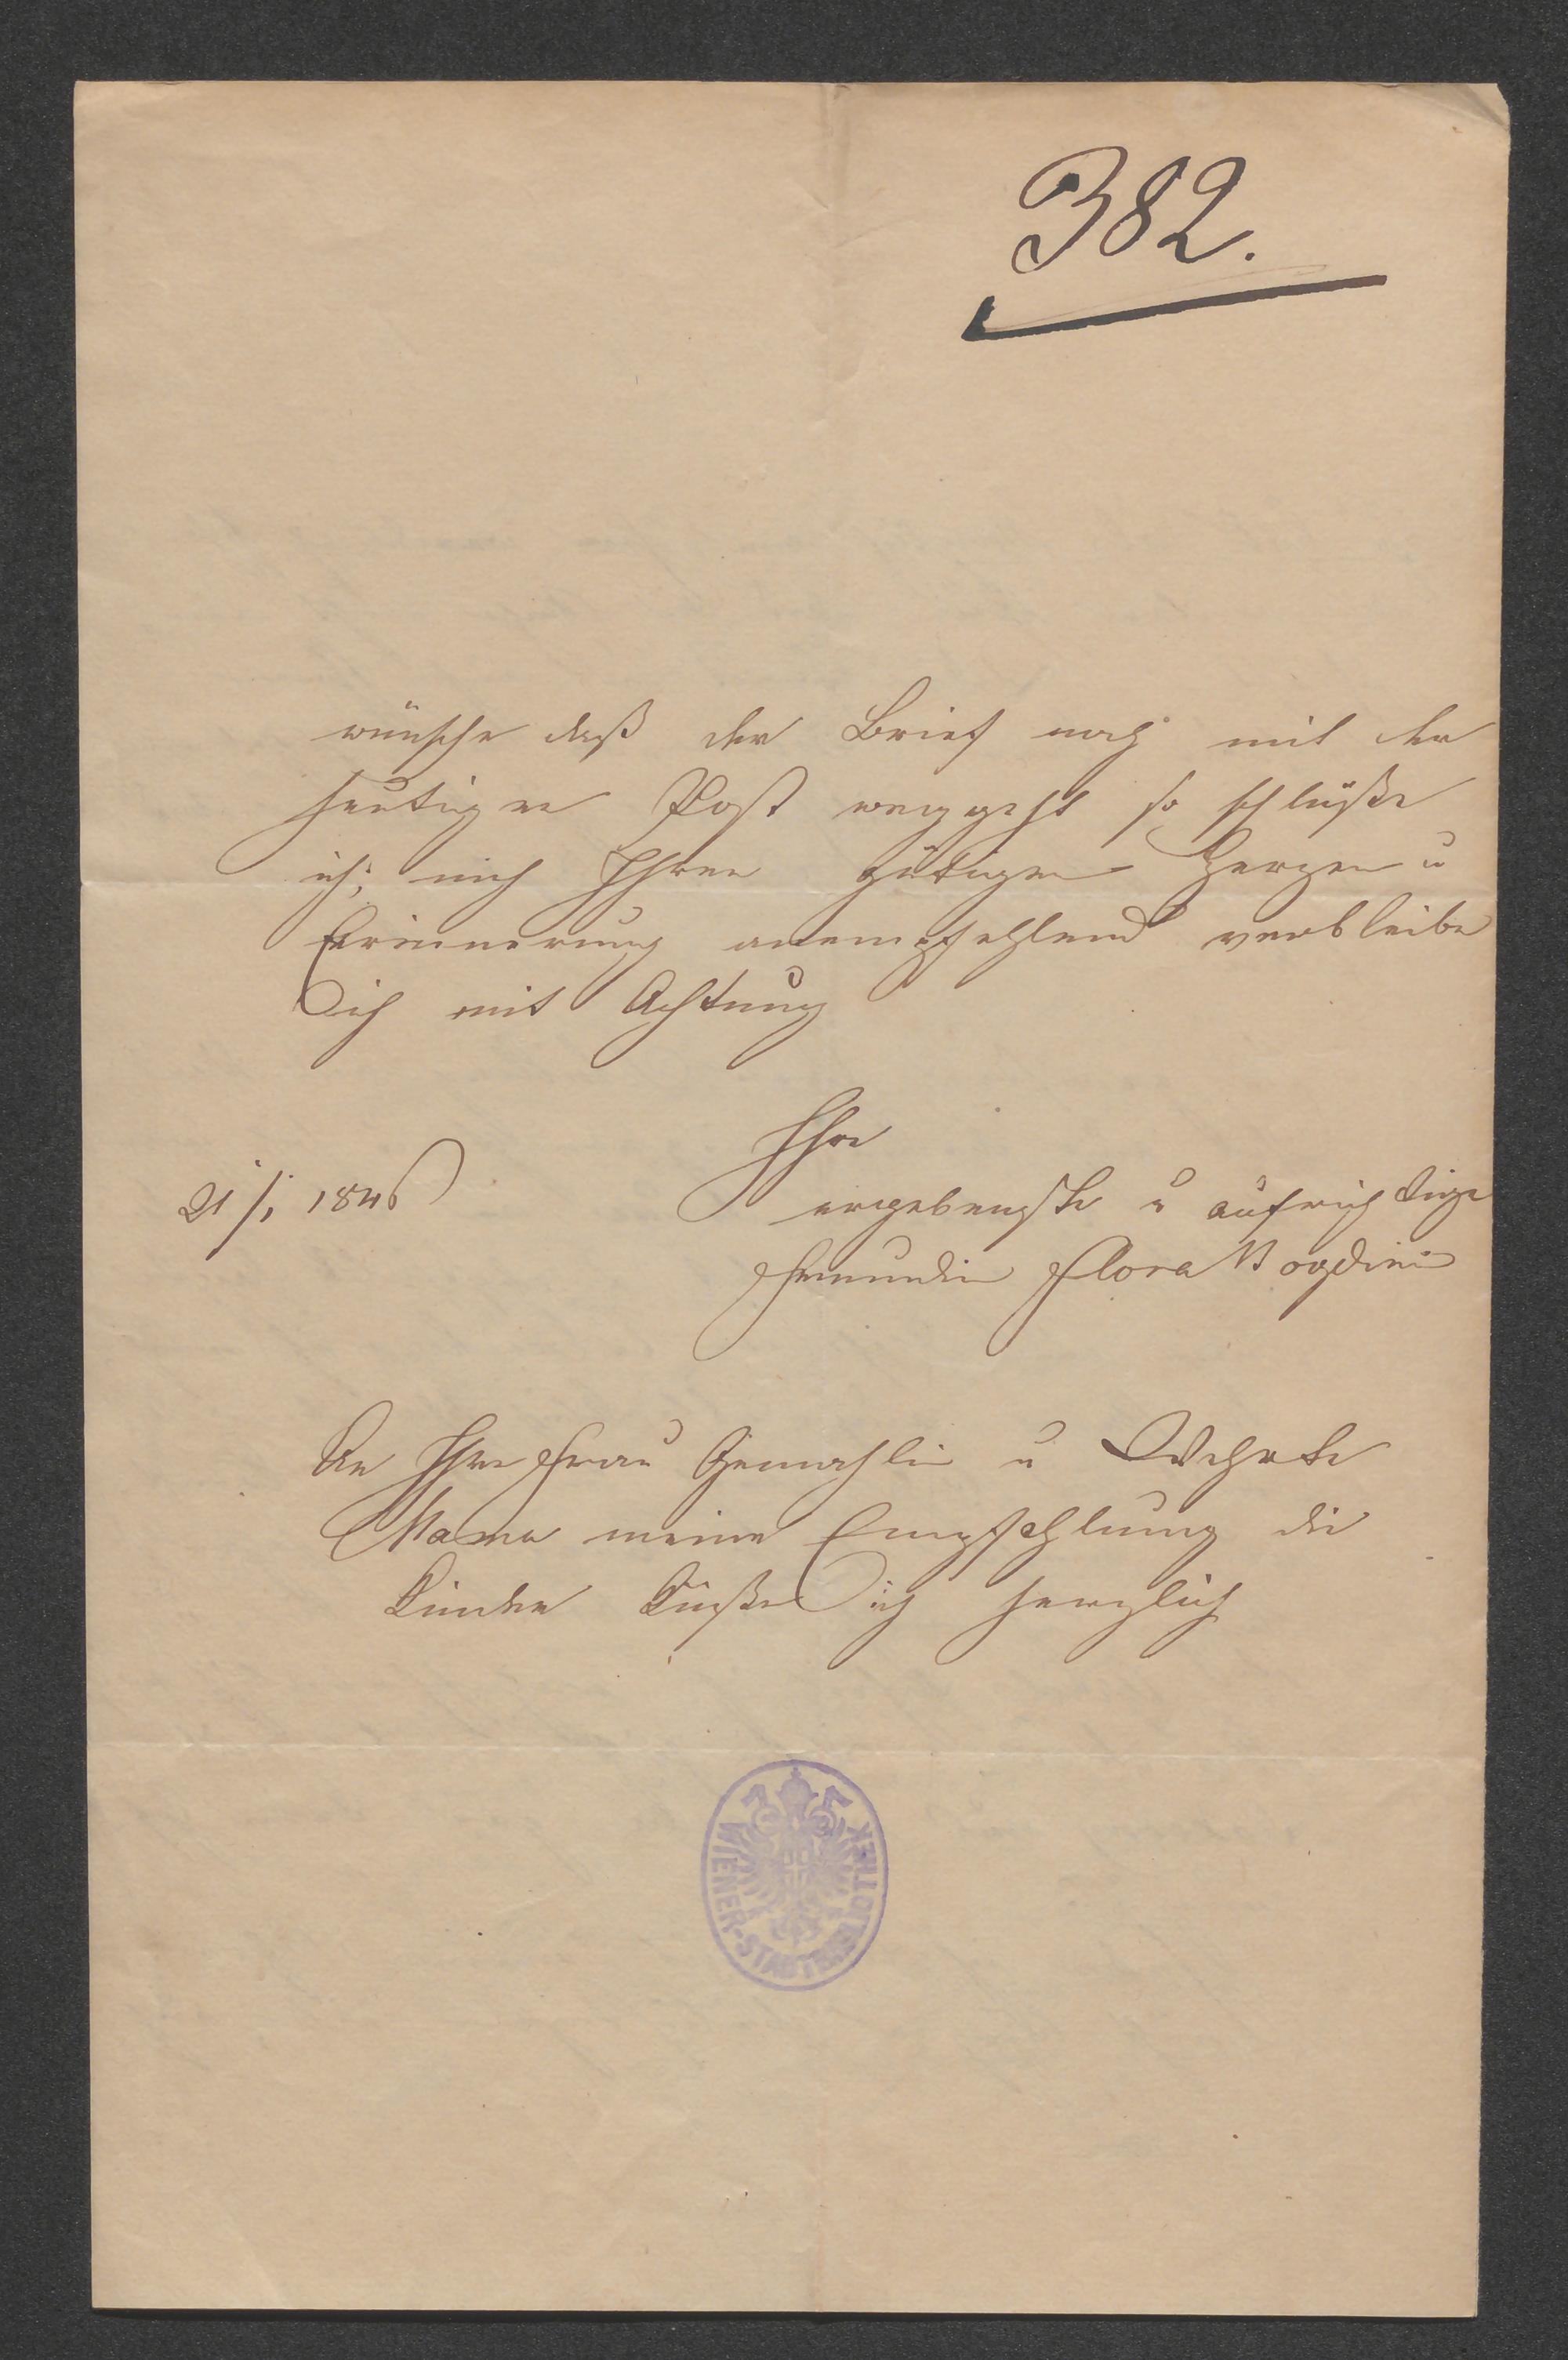 382.
wünsche daß der Brief noch mit der
heutigen Post weggeht so schlüße
ich; mich Ihren gütigen Herzen u
Errinnerung anempfehlend verbleibe
ich mit Achtung
Ihre
21/1 1846
ergebenste u aufrichtige
Freundin Flora
An Ihre Frau Gemahlin u Wehrte
Mama meine Empfehlung die
Kinder küße ich herzlich
WIENER-STADTBIBLIOTHEK